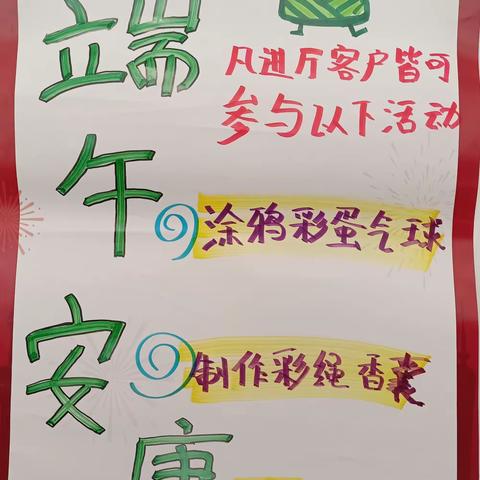 端午安康
凡进厅客户皆可
参与以下活动
涂鸦彩蛋气球
制作彩绳香囊